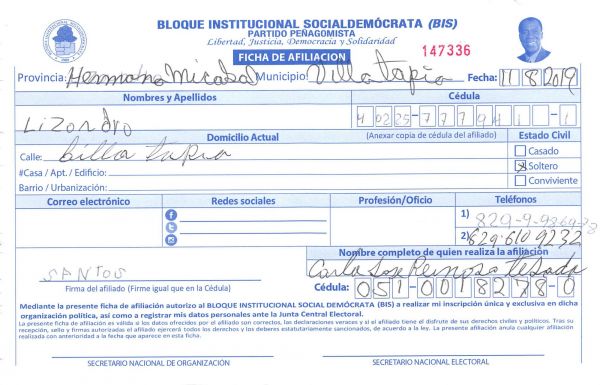 BLOQUE INSTITUCIONAL SOCIALDEMÓCRATA (BIS)
PARTIDO PEÑAGOMISTA
Libertad, Justicia, Democracia y Solidaridad
FICHA DE AFILIACION 147336
Provincia: Hermana Mirabal Municipio: Villa Tapia Fecha: 11/8/2019
Nombres y Apellidos Cédula
Lizandro 40225-77794 1-1
Domicilio Actual (Anexar copia de cédula del afiliado) Estado Civil
Calle: billa tapia Casado
#Casa / Apt. / Edificio: Soltero
Barrio / Urbanización: Conviviente
Correo electrónico Redes sociales Profesión/Oficio Teléfonos
1) 829-9-9864-78
2) 829-610 9232
Nombre completo de quien realiza la afiliación
SANTOS Carlos Jose Reinoso
Firma del afiliado (Firme igual que en la Cédula) Cédula: 051-0018278-0
Mediante la presente ficha de afiliación autorizo al BLOQUE INSTITUCIONAL SOCIAL DEMÓCRATA (BIS) a realizar mi inscripción única y exclusiva en dicha
organización política, así como a registrar mis datos personales ante la Junta Central Electoral.
La presente ficha de afiliación es válida si los datos ofrecidos por el afiliado son correctos, las declaraciones veraces y si el afiliado tiene el disfrute de sus derechos civiles y políticos. Tras su
recepción, sello y firmas autorizadas el afiliado ejercerá todos los derechos y los deberes estatutariamente sancionados, de acuerdo a la ley. La presente afiliación anula cualquier afiliación
realizada con anterioridad a la fecha que aparece en esta ficha.
SECRETARIO NACIONAL DE ORGANIZACIÓN SECRETARIO NACIONAL ELECTORAL